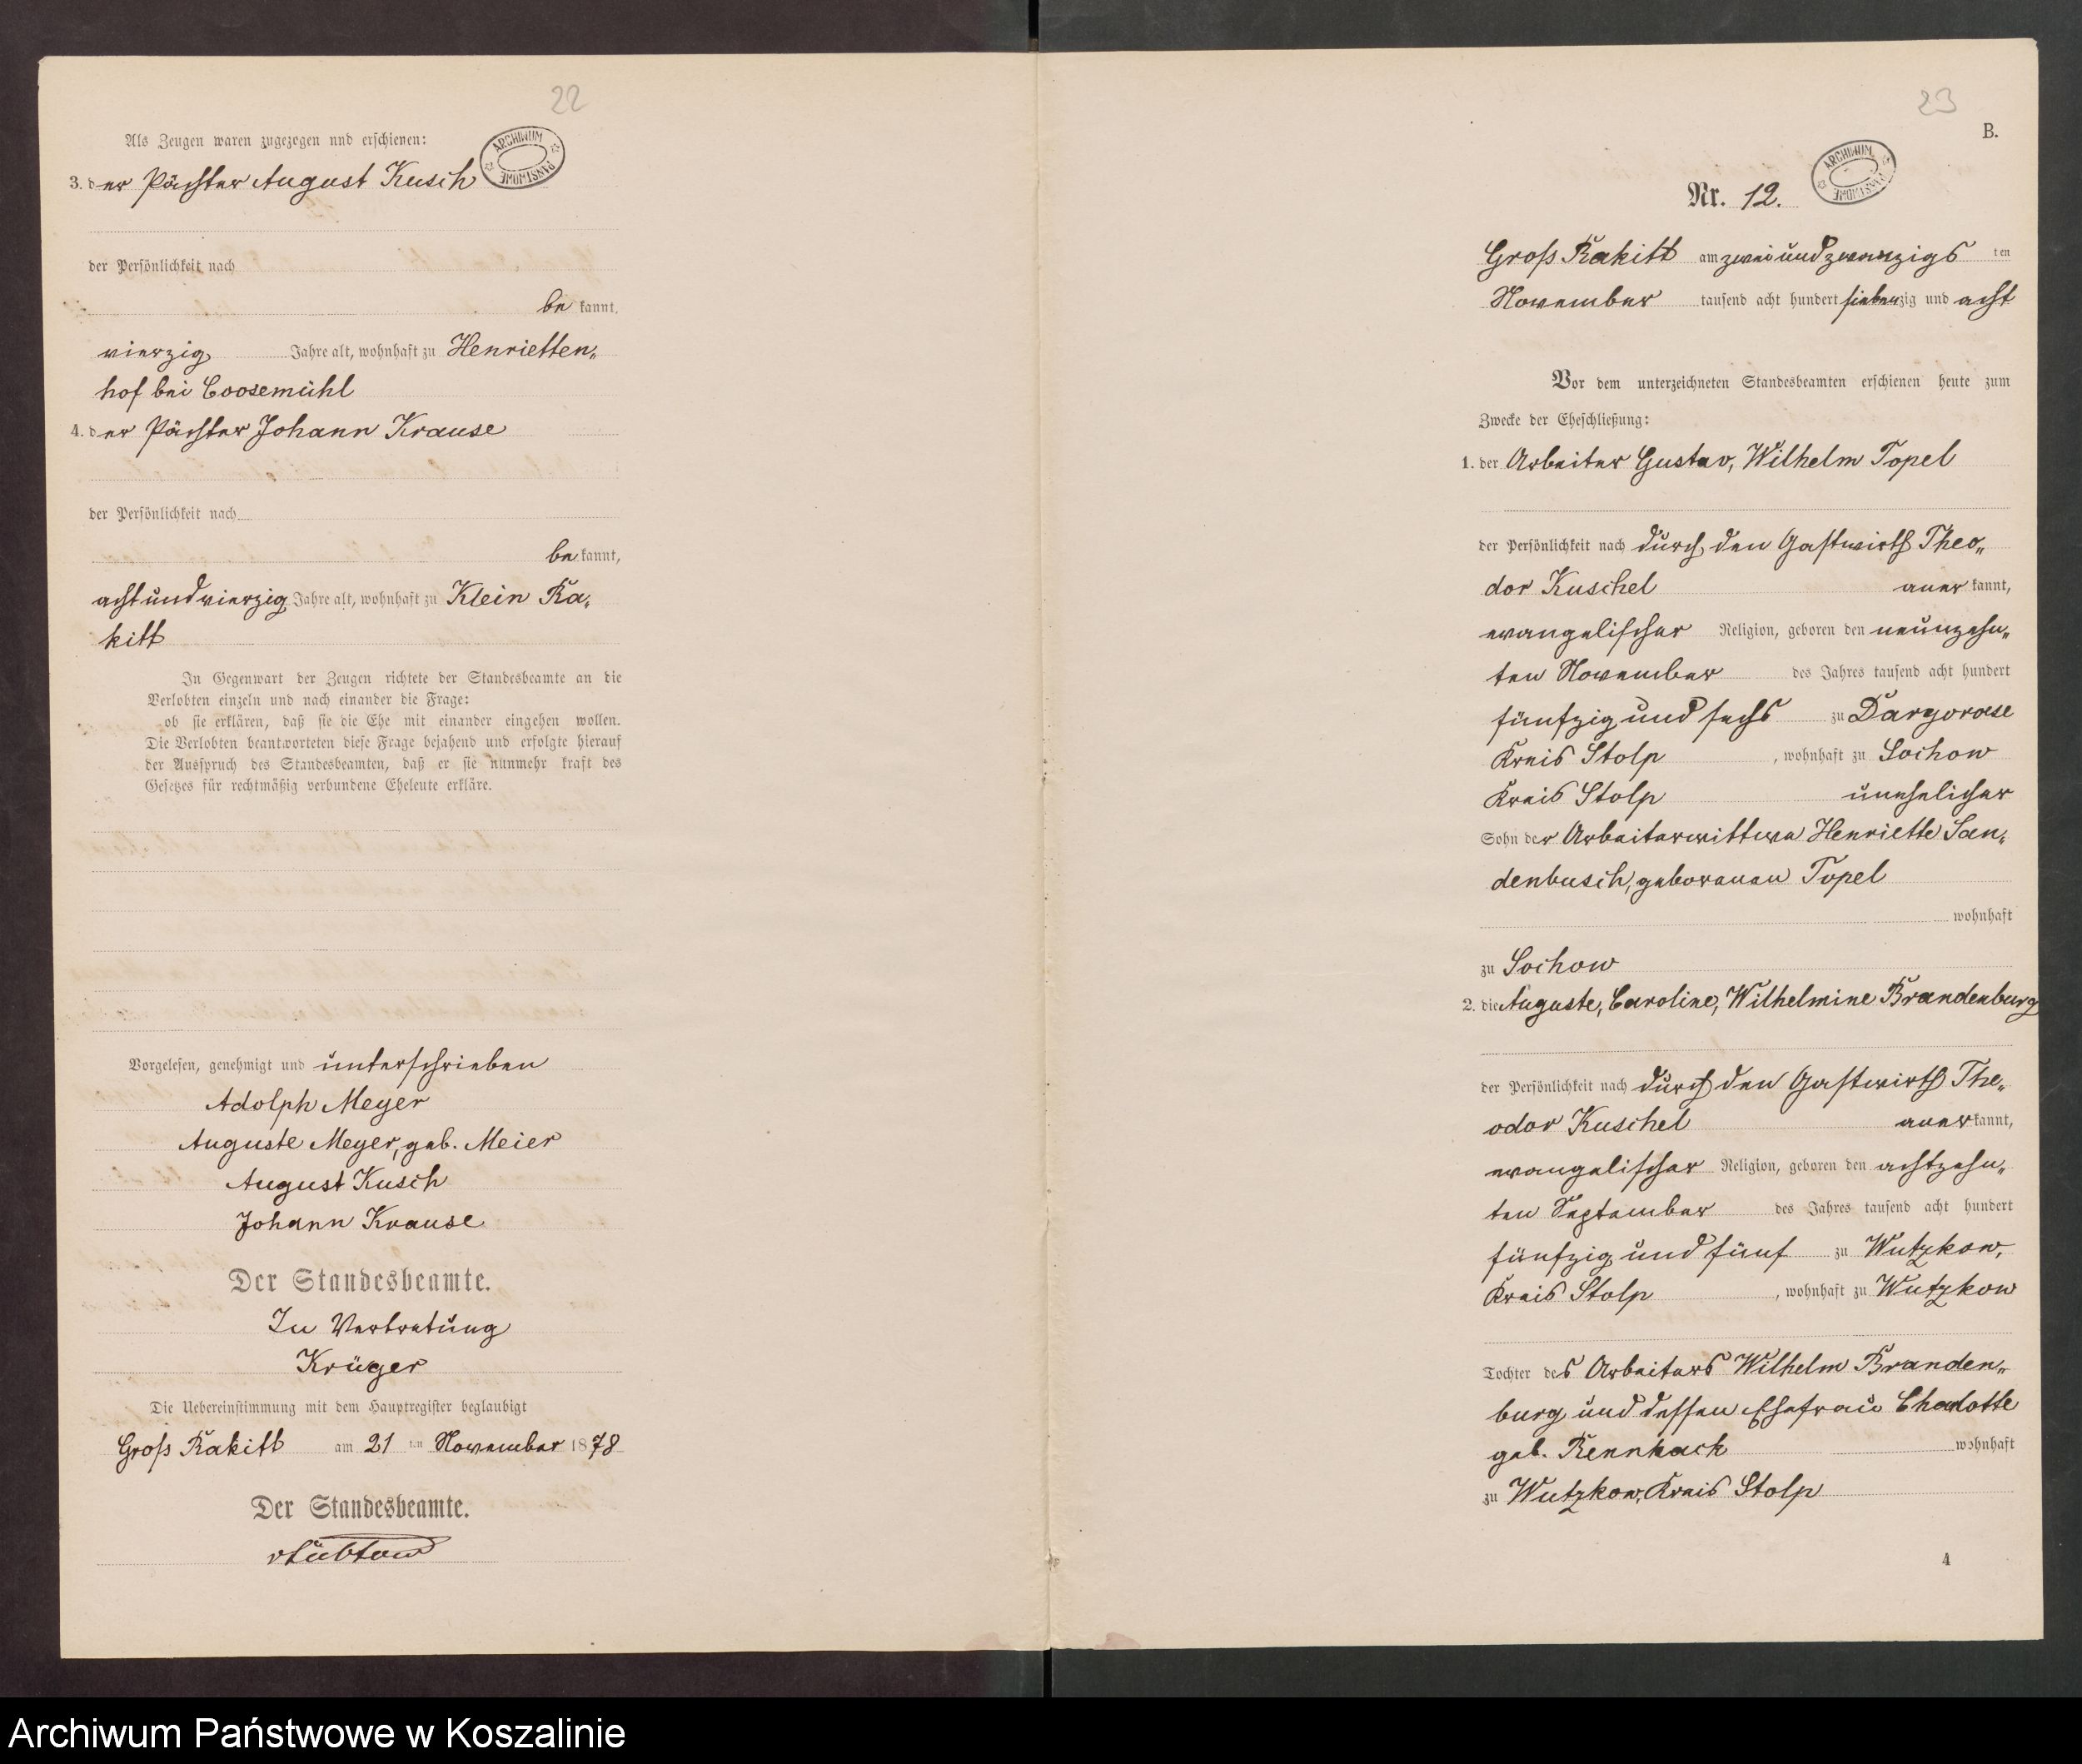 22
Als Zeugen waren zugezogen und erschienen:
ARCHIWUM PAŃSTWOWE
3. der Pächter August Kusch
der Persönlichkeit nach
be kannt,
vierzig Jahre alt, wohnhaft zu Henrietten„
hof bei Coosemühl
4. der Pächter Johann Krause
der Persönlichkeit nach
be kannt,
achtundvierzig Jahre alt, wohnhaft zu Klein Ra„
kitt
In Gegenwart der Zeugen richtete der Standesbeamte an die
Verlobten einzeln und nach einander die Frage:
ob sie erklären, daß sie die Ehe mit einander eingehen wollen.
Die Verlobten beantworteten diese Frage bejahend und erfolgte hierauf
der Ausspruch des Standesbeamten, daß er sie nunmehr kraft des
Gesetzes für rechtmäßig verbundene Eheleute erkläre.
Vorgelesen, genehmigt und unterschrieben
Adolph Meyer
Auguste Meyer, geb. Meier
August Kusch
Johann Krause
Der Standesbeamte.
In Vertretung
Krüger
Die Uebereinstimmung mit dem Hauptregister beglaubigt
Groß Rakitt am 21 ten November 1878
Der Standesbeamte.
23
B.
ARCHIWUM PAŃSTWOWE
Nr. 12.
Groß Rakitt am zweiundzwanzigs ten
November tausend acht hundert siebenzig und acht
Vor dem unterzeichneten Standesbeamten erschienen heute zum
Zwecke der Eheschließung:
1. der Arbeiter Gustav, Wilhelm Topel
der Persönlichkeit nach durch den Gastwirth Theo„
dor Kuschel aner kannt,
evangelischer Religion, geboren den neunzehn„
ten November des Jahres tausend acht hundert
fünfzig und sechs zu Dargorose
Kreis Stolp, wohnhaft zu Sochow
Kreis Stolp unehelicher
Sohn der Arbeiterwittwe Henriette San„
denbusch, geborenen Topel
wohnhaft
zu Sochow
2. die Auguste, Caroline, Wilhelmine Brandenburg
der Persönlichkeit nach durch den Gastwirth The„
odor Kuschel aner kannt,
evangelischer Religion, geboren den achtzehn„
ten September des Jahres tausend acht hundert
fünfzig und fünf zu Wutzkow,
Kreis Stolp, wohnhaft zu Wutzkow
Tochter des Arbeiters Wilhelm Branden„
burg und dessen Ehefrau Charlotte
geb. Rennhack wohnhaft
zu Wutzkow, Kreis Stolp
4
Archiwum Państwowe w Koszalinie